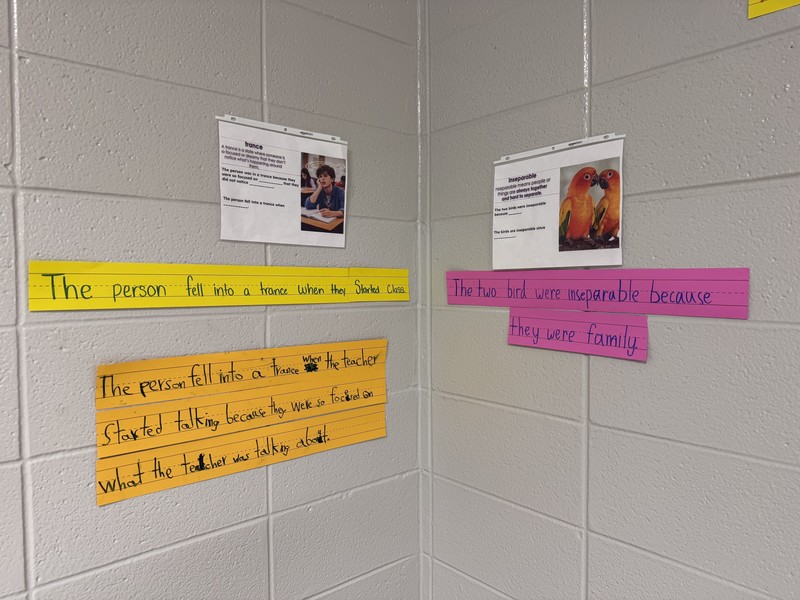 trance
A trance is a state where someone is
so focused or dreamy that they don't
notice what's happening around
them.
The person was in a trance because they
were so focused on __________ that they
did not notice __________.
The person fell into a trance when
__________.
The person fell into a trance when they Started Class.
The person fell into a trance when the teacher
Started talking because they were so focused on
What the teacher was talking about.
Inseparable
Inseparable means people or
things are always together
and hard to separate.
The two birds were inseparable
because __________.
The birds are inseparable since
__________.
The two bird were inseparable because
they were family